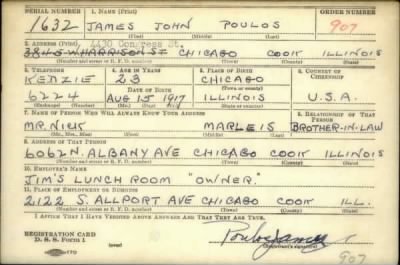 SERIAL NUMBER 1. NAME (Print) ORDER NUMBER
1632 JAMES JOHN POULOS 907
(First) (Middle) (Last)
2. ADDRESS (Print) 4430 Congress St.
3845 W HARRISON ST CHICAGO COOK ILLINOIS
(Number and street or R. F. D. number) (Town) (County) (State)
3. TELEPHONE 4. AGE IN YEARS 5. PLACE OF BIRTH 6. COUNTRY OF CITIZENSHIP
KEDZIE 23 CHICAGO
DATE OF BIRTH (Town or county)
6224 AUG 15 1917 ILLINOIS U.S.A.
(Exchange) (Number) (Mo.) (Day) (Yr.) (State or country)
7. NAME OF PERSON WHO WILL ALWAYS KNOW YOUR ADDRESS 8. RELATIONSHIP OF THAT PERSON
MR. NICK MARLEIS BROTHER-IN-LAW
(Mr., Mrs., Miss) (First) (Middle) (Last)
9. ADDRESS OF THAT PERSON
6062 N. ALBANY AVE CHICAGO COOK ILLINOIS
(Number and street or R. F. D. number) (Town) (County) (State)
10. EMPLOYER'S NAME
JIM'S LUNCH ROOM "OWNER."
11. PLACE OF EMPLOYMENT OR BUSINESS
2122 S. ALLPORT AVE CHICAGO COOK ILL.
(Number and street or R. F. D. number) (Town) (County) (State)
I AFFIRM THAT I HAVE VERIFIED ABOVE ANSWERS AND THAT THEY ARE TRUE.
REGISTRATION CARD
D. S. S. Form 1
Poulos James
(Registrant's signature)
907